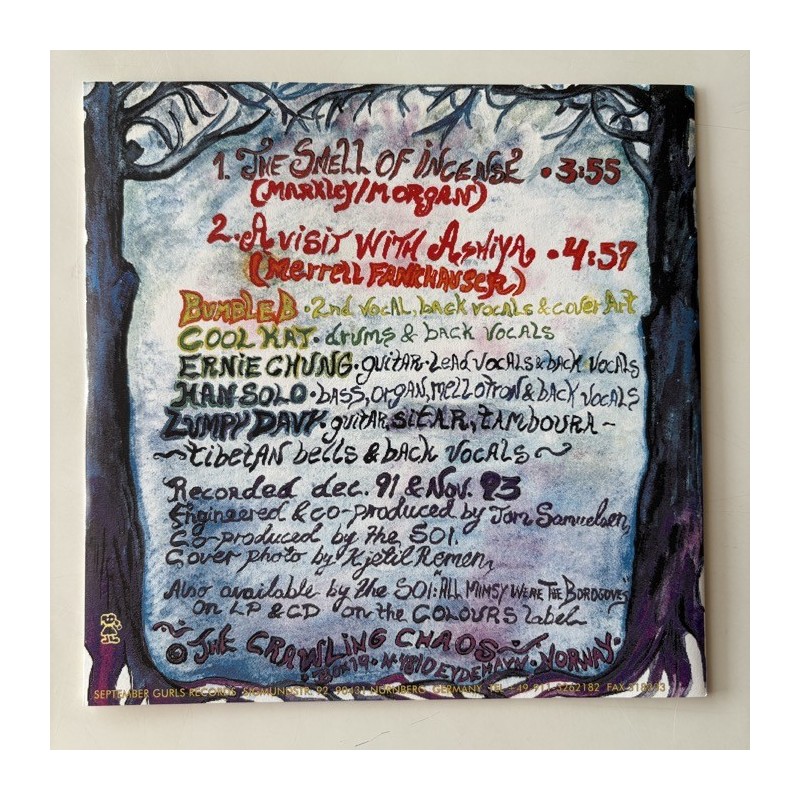 1. The Smell of incense • 3:55
(Markley/Morgan)
2. A visit with Ashiya, • 4:57
(Merrell Fankhauser)
Bumble B • 2nd vocal, back vocals & cover Art
Cool Kat • drums & back vocals
Ernie Chung • guitar • Lead vocals & back vocals
Han Solo • bass, organ, mellotron & back vocals
Lumpy Davy • guitar, sitar, tamboura ~
~ tibetan bells & back vocals ~
Recorded dec. 91 & Nov. 93
Engineered & co-produced by Tom Samuelsen,
Co-produced by the SOI.
Cover photo by Kjetil Remen,
Also available by the SOI: ALL MIMSY WERE THE BOROGOVES
on LP & CD on the COLOURS label
© The Crawling Chaos ~
Norway.
SEPTEMBER GURLS RECORDS SIGMUNDSTR. 92 90431 NÜRNBERG GERMANY TEL +49 911